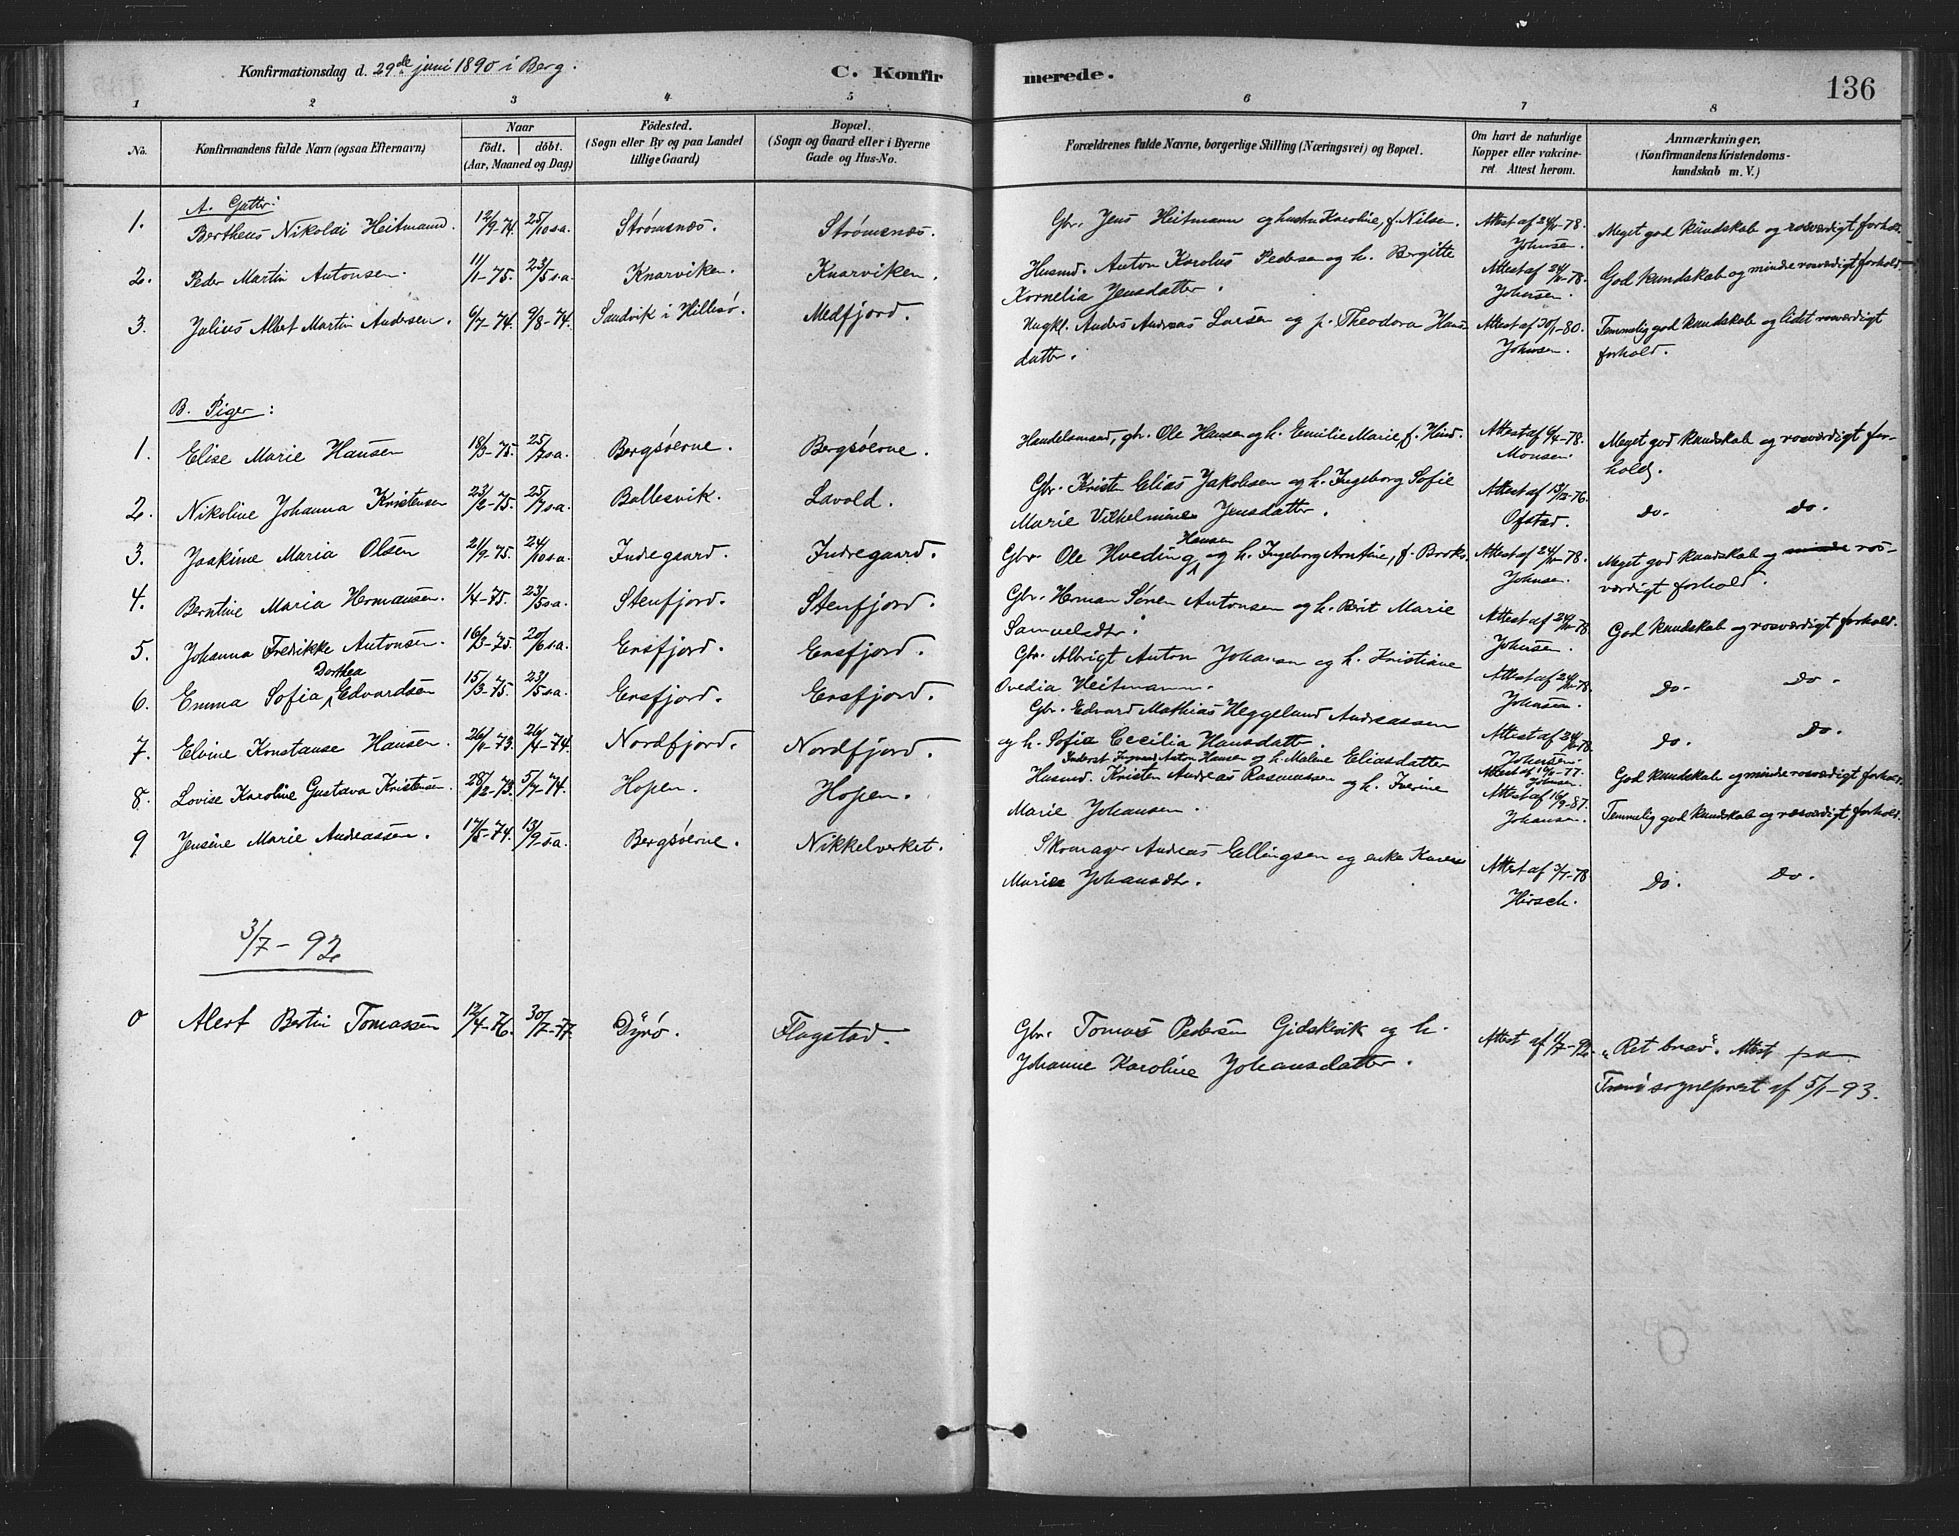 Konfirmationsdag d. 29de juni 1890 i Berg.
C. Konfirmerede.
136
1 2 3 4 5 6 7 8
No.
Konfirmandens fulde Navn (ogsaa Efternavn)
Naar
født. døbt.
(Aar, Maaned og Dag)
Fødested.
(Sogn eller By og paa Landet
tillige Gaard)
Bopæl.
(Sogn og Gaard eller i Byerne
Gade og Hus-No.
Forældrenes fulde Navne, borgerlige Stilling (Næringsvei) og Bopæl.
Om havt de naturlige
Kopper eller vakcine-
ret. Attest herom.
Anmærkninger.
(Konfirmandens Kristendoms-
kundskab m. V.)
A. Gutter:
1. Bertheus Nikolai Heitmand. 12/9-74. 25/10 s.a. Strømsnæs. Strømsnæs. Gbr. Jens Heitmann og hustru Karoline, f. Nilsen. Attest af 24/10-78. Johnsen. Meget god kundskab og rosværdigt forhold.
2. Peder Martin Antonsen. 11/1-75. 23/5 s.a. Knarviken. Knarviken. Husmd. Anton Karolus Pedersen og h. Bergitte
Kornelia Jensdatter. Attest af 24/10-78. Johnsen. God kundskab og mindre rosværdigt forhold.
3. Julius Albert Martin Andersen. 6/7-74. 9/8-74. Sandvik i Hillesø. Medfjord. Ungkl. Anders Andreas Larsen og p. Theodora Hans-
datter. Attest af 30/1-80. Johnsen. Temmelig god kundskab og lidet rosværdigt
forhold.
B. Piger:
1. Elise Marie Hansen 18/3-75. 25/7 s.a. Bergsøerne. Bergsøerne. Handelsmand, gbr. Ole Hansen og h. Emilie Marie f. Hind. Attest af 6/4-78. Monsen. Meget god kundskab og rosværdigt for-
hold.
2. Nikoline Johanna Kristensen 23/2-75. 25/7 s.a. Ballesvik. Lavold. Gbr. Kristen Elias Jakobsen og h. Ingeborg Sofie
Marie Vilhelmine Jensdatter. Attest af 13/12-76. Ofstad. do. do.
3. Jaakine Maria Olsen 21/9-75. 24/10 s.a. Indregaard. Indregaard. Gbr. Ole Hveding Hansen og h. Ingeborg Arntine, f. Brox. Attest af 24/10-78. Johnsen. Meget god kundskab og minde ros-
værdigt forhold.
4. Berntine Maria Hermansen. 1/4-75. 23/5 s.a. Stenfjord. Stenfjord. Gbr. Herman Søren Antonsen og h. Berit Marie
Samuelsdtr. Attest af 24/10-78. Johnsen. God kundskab og rosværdigt forhold.
5. Johanna Fredrikke Antonsen. 16/3-75. 20/6 s.a. Ersfjord. Ersfjord. Gbr. Albrigt Anton Johansen og h. Kristiane
Ovedia Heitmann. Attest af 24/10-78. Johnsen. do. do.
6. Emma Sofia Dorthea Edvardsen 15/3-75. 23/5 s.a. Ersfjord. Ersfjord. Gbr. Edvard Mathias Heggelund Andreassen
og h. Sofie Cecilia Hansdatter. Attest af 24/10-78. Johnsen. do. do.
7. Elvine Konstanse Hansen. 26/11-73. 26/4-74. Nordfjord. Nordfjord. Inderst Ingvard Anton Hansen og h. Malene Eliasdatter Attest af 16/11-77. Johnsen. God kundskab og mindre rosværdigt forhold.
8. Lovise Karoline Gustava Kristensen. 28/12-73. 5/7-74. Hopen. Hopen. Husmd. Kristen Andreas Rasmussen og h. Iverine
Marie Johansen. Attest af 16/9-87. Johansen. Temmelig god kundskab og rosværdigt forhold.
9 Jensine Marie Andreassen. 17/5-74. 13/9 s.a. Bergsøerne. Nikkelverket. Skomager Andreas Ellingsen og enke Karen
Marie Johansdtr. Attest af 7/1-78 Hirsch. do. do.
3/7-92
0 Alert Bertin Tomassen 12/4-76. 30/7-77. Dyrø. Flagstad. Gbr. Tomas Pedersen Gidskevik og h.
Johanne Karoline Johansdatter. Attest af 1/7-92. "Ret brav". Attest fra
Tranø sogneprest af 5/1-93.